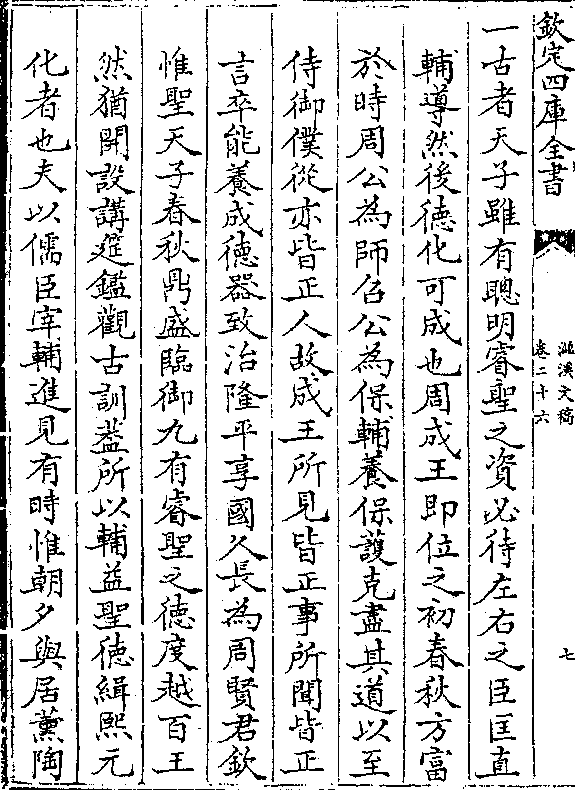 欽定四庫全書
滋溪文稿
卷二十六
七
一古者天子雖有聰明睿聖之資必待左右之臣匡直
輔導然後徳化可成也周成王即位之初春秋方富
於時周公為師召公為保輔養保護克盡其道以至
侍御僕從亦皆正人故成王所見皆正事所聞皆正
言卒能養成徳器致治隆平享國久長為周賢君欽
惟聖天子春秋鼎盛臨御九有睿聖之徳度越百王
然猶開設講筵鑑觀古訓葢所以輔益聖徳緝熙元
化者也夫以儒臣宰輔進見有時惟朝夕與居薰陶